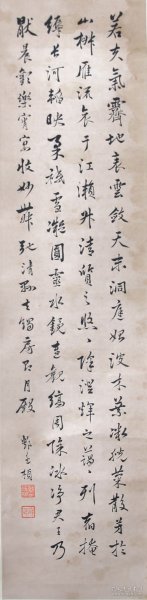 若夫氣霽地表雲斂天末洞庭始波木葉微脫菊散芳於
山椒雁流哀于江瀨升清質之悠悠降澄煇之藹藹列宿掩
縟長河韜映柔祇雪凝圓靈水鏡連觀霜縞周除冰淨君王乃
厭晨歡樂宵宴收妙舞弛清縣去燭房即月殿